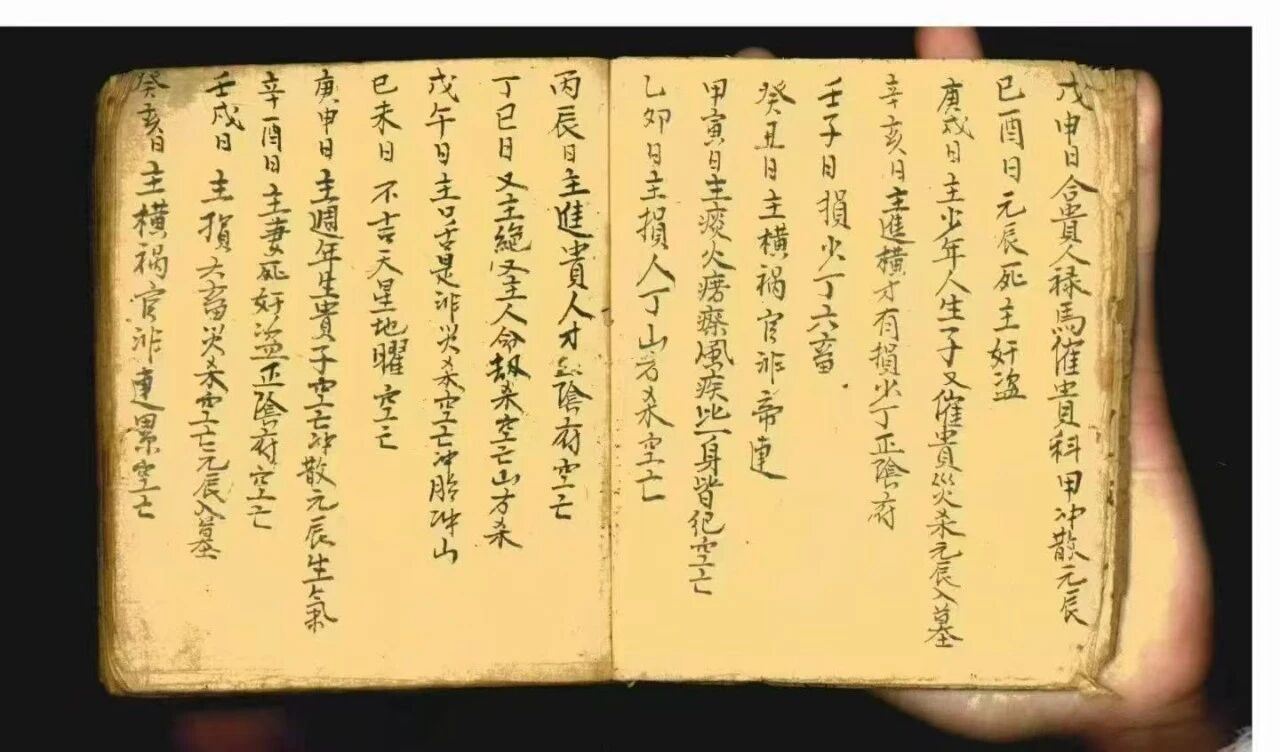 戊申日合貴人禄馬催貴科甲冲散元辰
已酉日元辰死主奸盗
庚戌日主少年人生子又催貴災杀元辰入墓
辛亥日主進横才有損少丁正陰府
壬子日損少丁六畜
癸丑日主横祸官非帝連
甲寅日主痰火痨瘵風疾此一身皆犯空亡
乙卯日主損人丁山方杀空亡
丙辰日主進貴人才正陰府空亡
丁巳日又主絶又主人命刼杀空亡山方杀
戊午日主口舌是非災杀空亡冲胎冲山
已未日不吉天星地曜空亡
庚申日主週年生貴子空亡冲散元辰生氣
辛酉日主妻死奸盗正陰府空亡
壬戌日主損六畜災杀空亡元辰入墓
癸亥日主横祸官非連累空亡